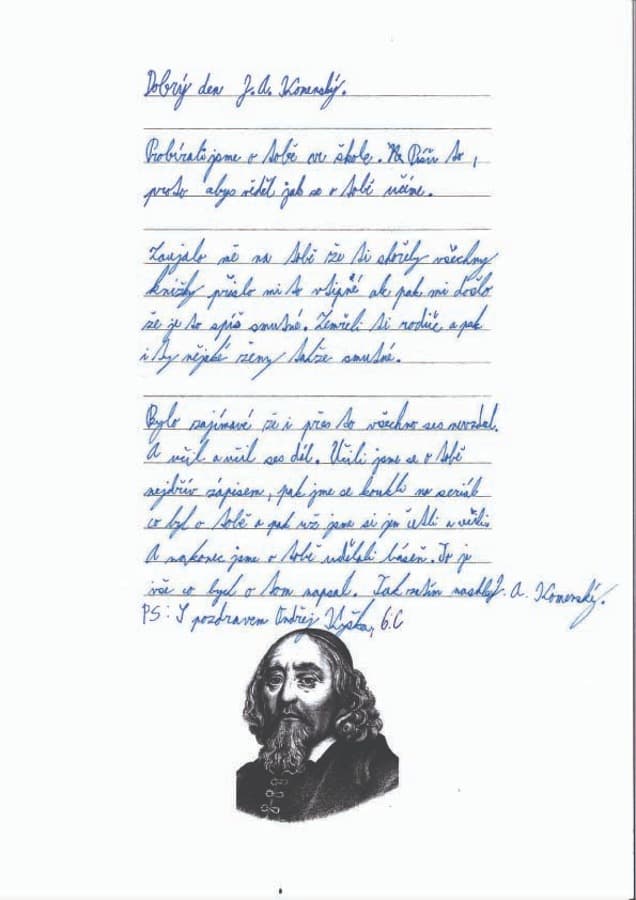 Dobrý den J. A. Komenský.
Probírali jsme o tobě ve škole. Píši to,
proto abys věděl jak se o tobě učíme.
Zaujalo mě na tobě že ti shořely všechny
knížky přišlo mi to vtipné ale pak mi došlo
že je to spíš smutné. Zemřeli ti rodiče a pak
i ty nějaké ženy takže smutné.
Bylo zajímavé že i přes to všechno ses nevzdal.
A učil a učil ses dál. Učili jsme se o tobě
nejdřív zápisem, pak jme se koukli na seriál
co byl o tobě a pak už jsme si jen četli a
A nakonec jsme o tobě udělali báseň. To je
vše co bych o tom napsal. Tak zatím nashle J. A. Komenský.
PS: S pozdravem Ondřej Kyška, 6.C